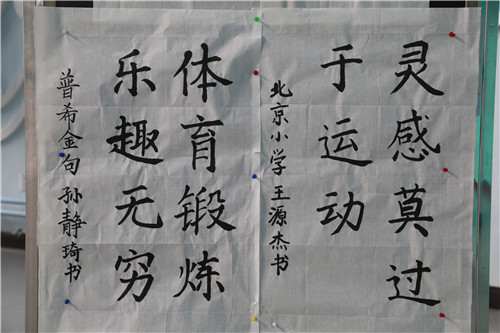 灵感莫过
于运动
北京小学王源杰书
体育锻炼
乐趣无穷
普希金句孙静琦书